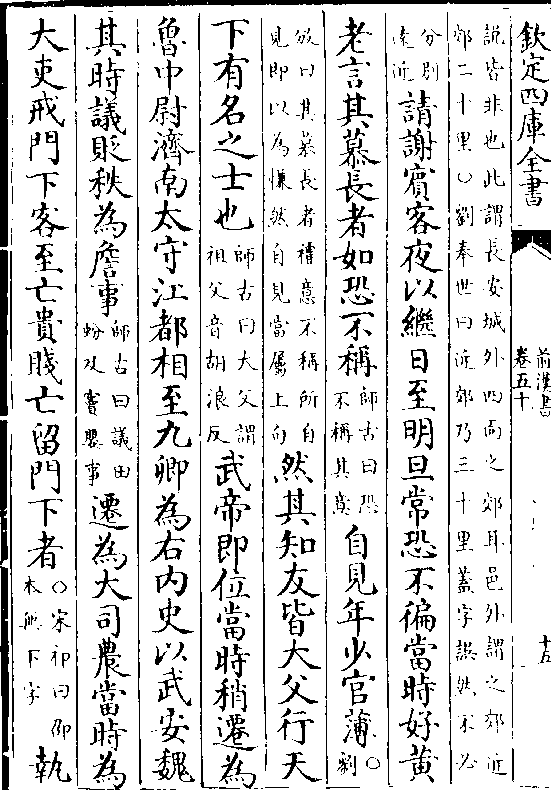 欽定四庫全書
前漢書
卷五十
十五
説皆非也此謂長安城外四面之郊耳邑外謂之郊近
郊二十里○劉奉世曰近郊乃三十里蓋字誤然不必
分別
逺近
請謝賓客夜以繼日至明旦常恐不徧當時好黄
老言其慕長者如恐不稱
師古曰恐
不稱其意
自見年少官薄
○
劉
攽曰其慕長者禮意不稱所自
見即以為慊然自見當屬上句
然其知友皆大父行天
下有名之士也
師古曰大父謂
祖父音胡浪反
武帝即位當時稍遷為
魯中尉濟南太守江都相至九卿為右内史以武安魏
其時議貶秩為詹事
師古曰議田
蚡及竇嬰事
遷為大司農當時為
大吏戒門下客至亡貴賤亡留門下者
○宋祁曰邵
本無下字
執